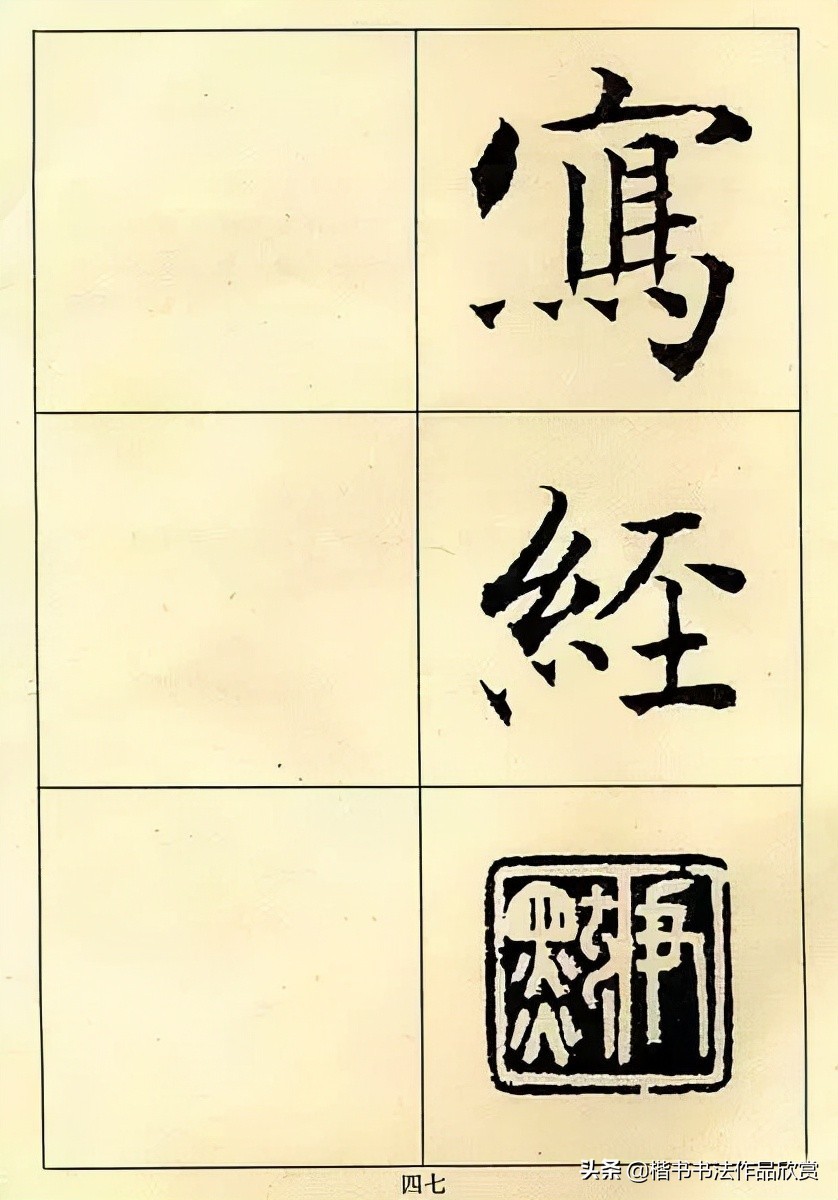 寫
經
四七
头条 @楷书书法作品欣赏